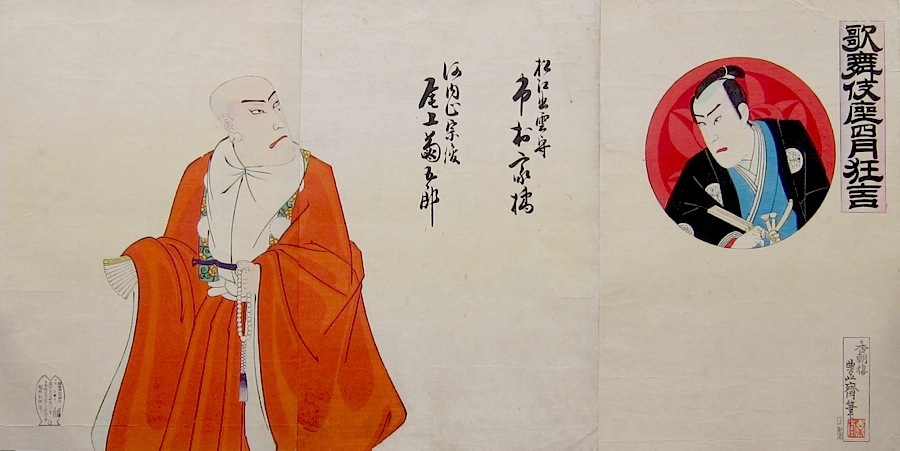 歌舞伎座四月狂言
松江出雲守
市村家橘
河内山宗俊
尾上菊五郎
香朝楼
豊斎筆